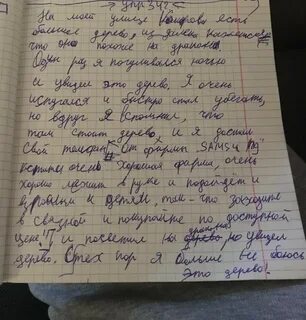 Упр 347
На моей улице Кипрова есть
большое дерево, из далека кажеться
что оно похоже на дракона.
Один раз я погуливался ночью
и увидел это дерево, Я очень
испугался и быстро стал убегать,
но вдруг Я вспомнил, что
там стоит дерево, и я достал
Свой телефон "От фирмы SAMSUNG"
очень хорошая фирма, очень
хорошо лежит в руке и подойдет и
взрослым и детям, так-что заходите
в связной и покупайте по доступной
цене "И посветил на дерево дракона но увидел
дерево. С тех пор я больше не боюсь
это дерево.